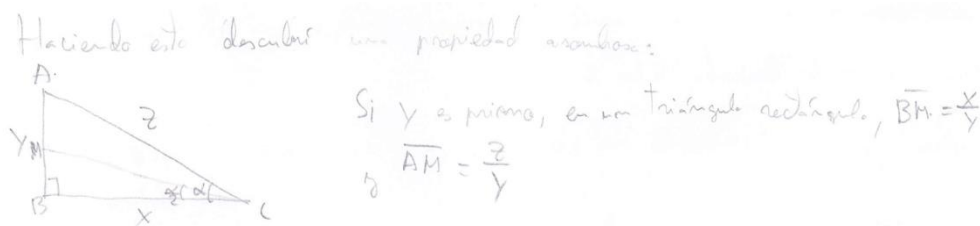 Haciendo esto descubrí una propiedad asombrosa:
A
z
Si y es primo, en un triángulo rectángulo, BM = x/y
y M
y AM = z/y
α α
B x C